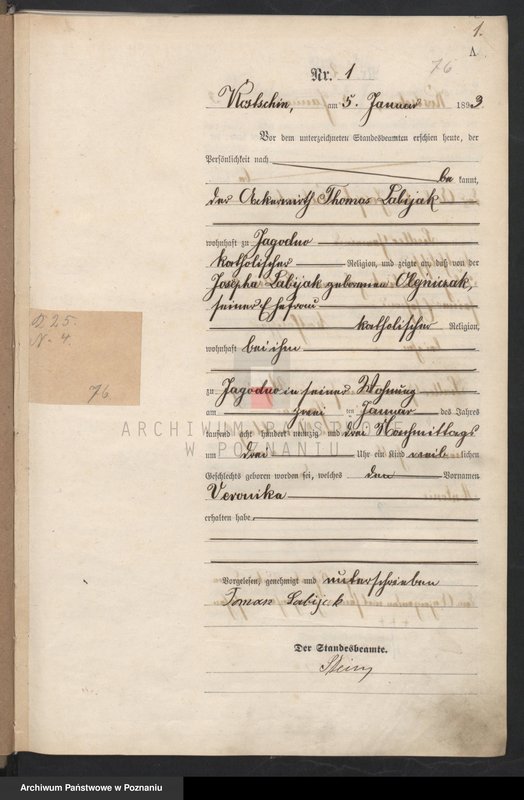 1.
A
Nr. 1
76
Kostschin, am 5. Januar 1893
Vor dem unterzeichneten Standesbeamten erschien heute, der
Persönlichkeit nach
be kannt,
der Ackerwirth Thomas Labijak
wohnhaft zu Jagodno
katholischer Religion, und zeigte an, daß von der
Josepha Labijak geborenen Olgniczak,
seiner Ehefrau
katholischer Religion,
wohnhaft bei ihm
zu Jagodno in seiner Wohnung
am zwei ten Januar des Jahres
tausend acht hundert neunzig und drei Nachmittags
um drei Uhr ein Kind weib lichen
Geschlechts geboren worden sei, welches den Vornamen
Veronika
erhalten habe.
Vorgelesen, genehmigt und unterschrieben
Tomasz Labijak
Der Standesbeamte.
25.
N. 4.
76
ARCHIWUM PAŃSTWOWE
W POZNANIU
Archiwum Państwowe w Poznaniu